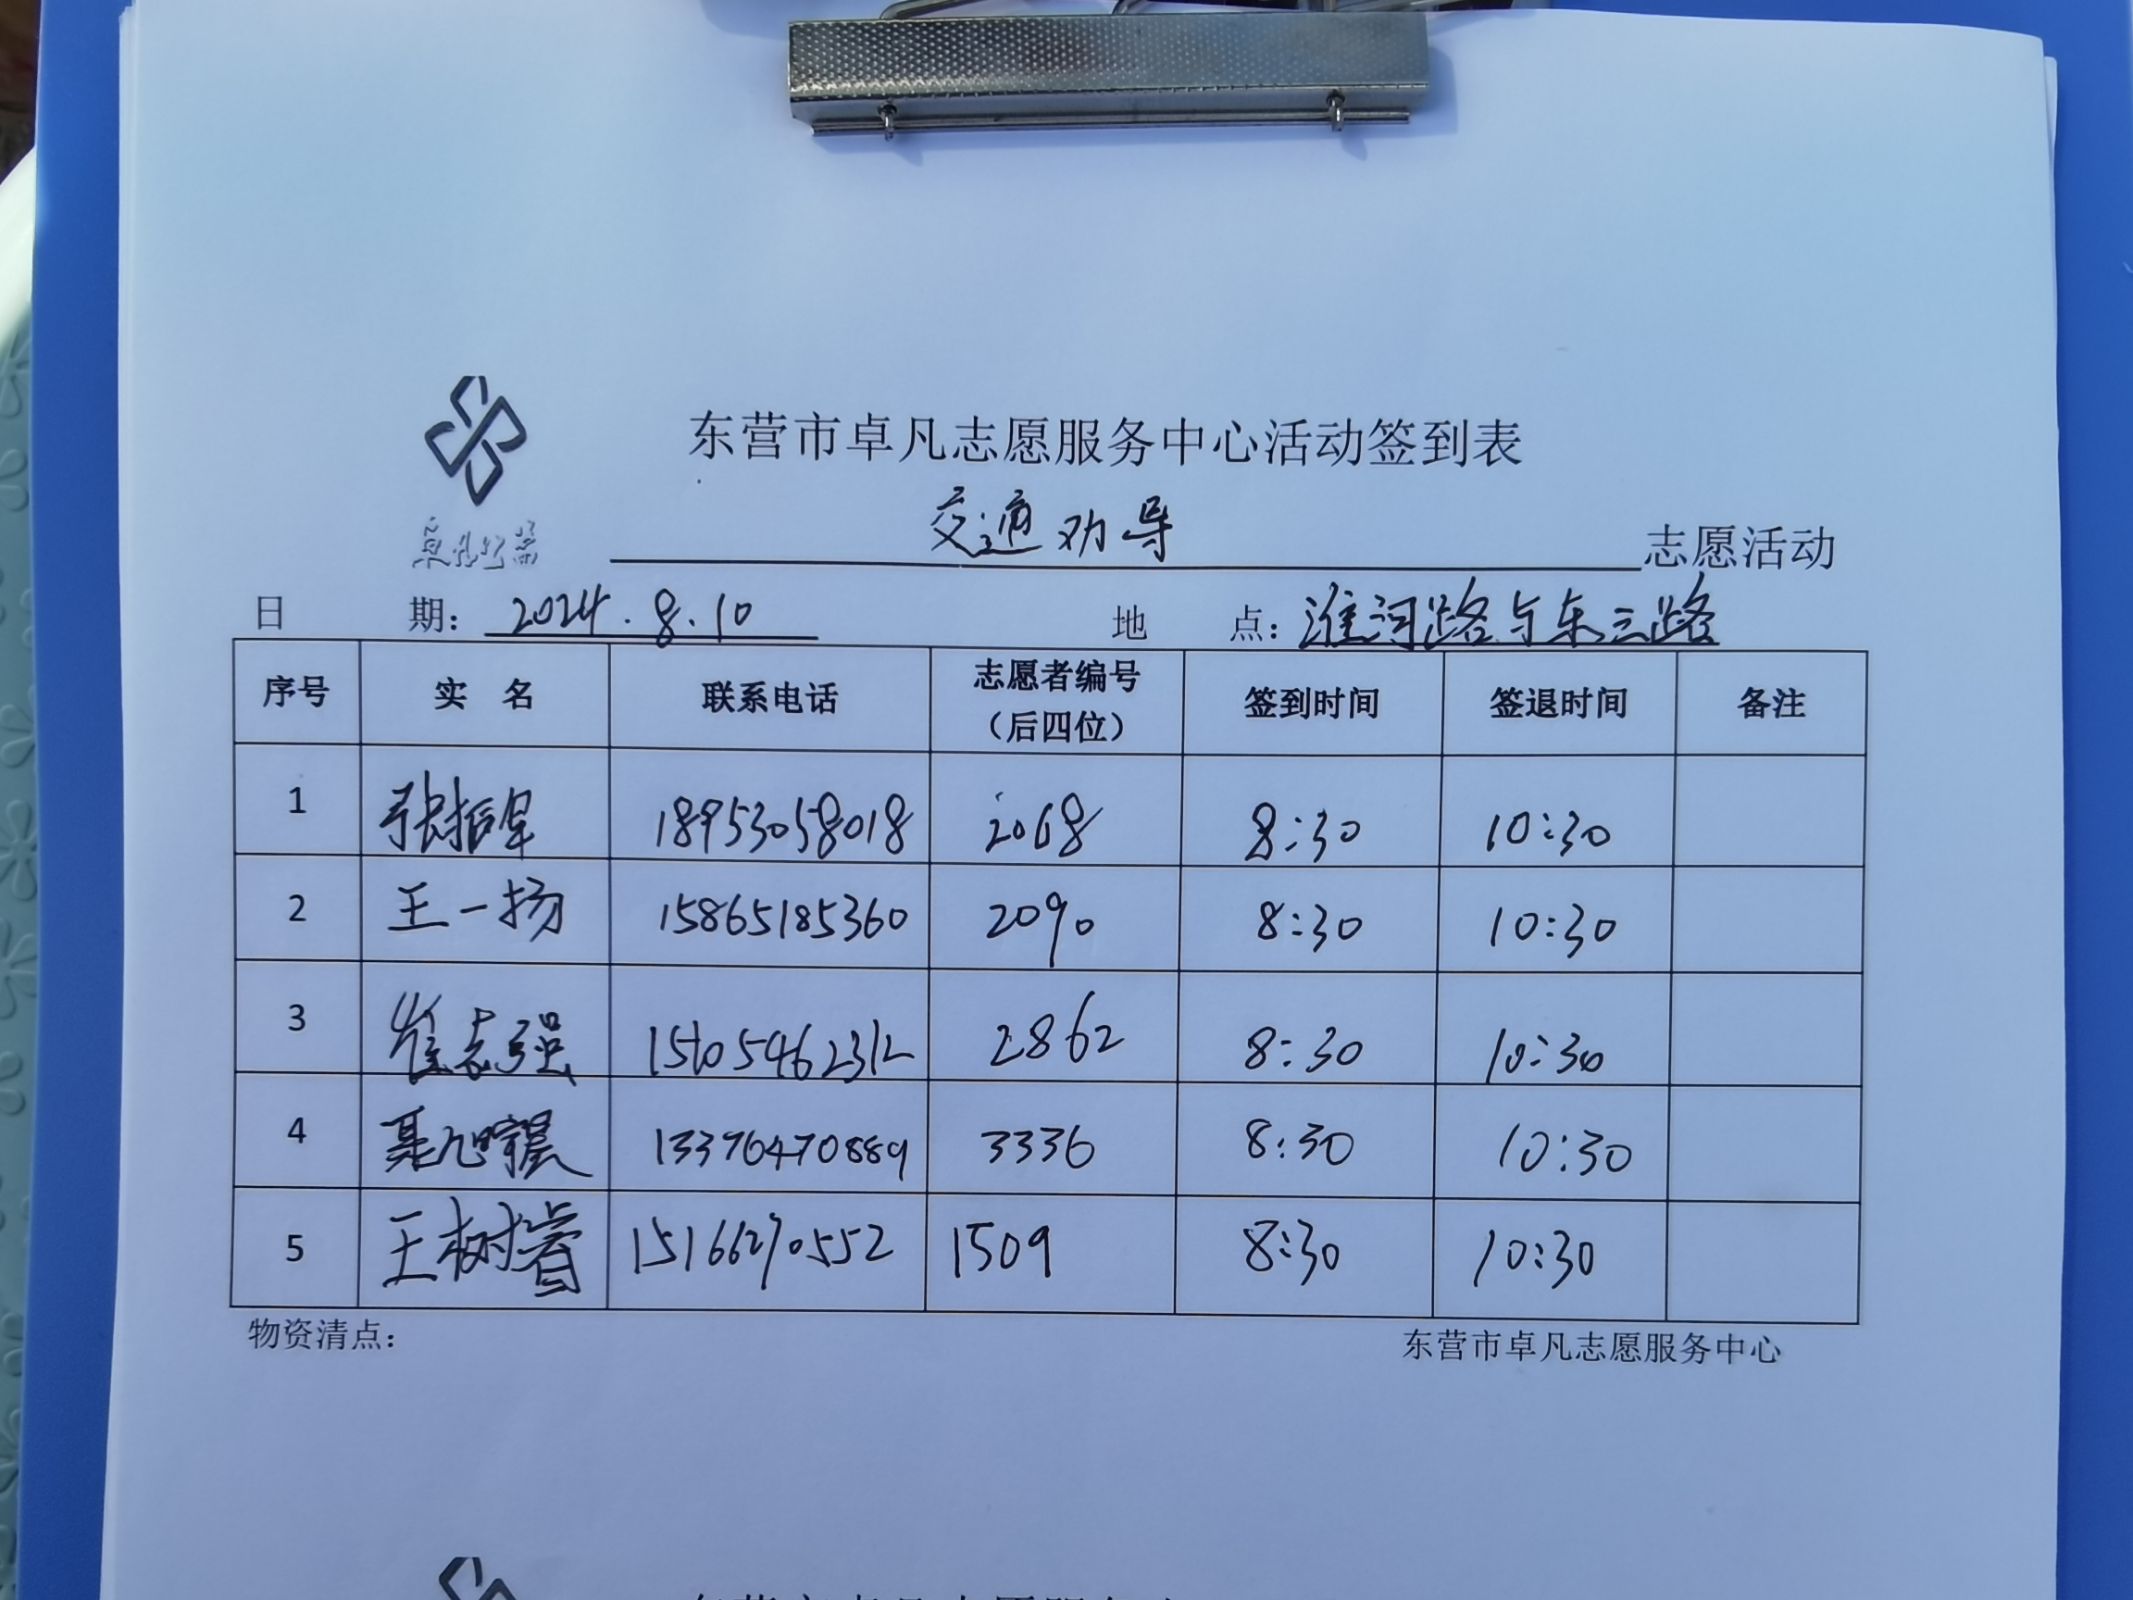 东营市卓凡志愿服务中心活动签到表
卓凡公益
交通劝导 志愿活动
日期：2024.8.10 地点：淮河路与东三路
序号 实名 联系电话 志愿者编号（后四位） 签到时间 签退时间 备注
1 张振 18953058018 2068 8:30 10:30
2 王一扬 15865185360 2090 8:30 10:30
3 崔志强 15105462312 2862 8:30 10:30
4 聂 13376470889 3336 8:30 10:30
5 王树睿 15166270552 1509 8:30 10:30
物资清点： 东营市卓凡志愿服务中心